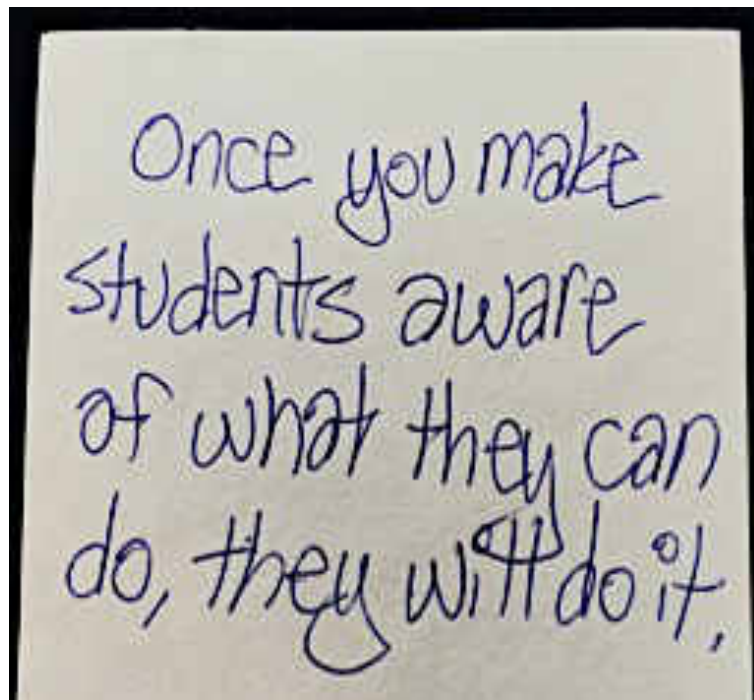 Once you make
students aware
of what they can
do, they will do it.